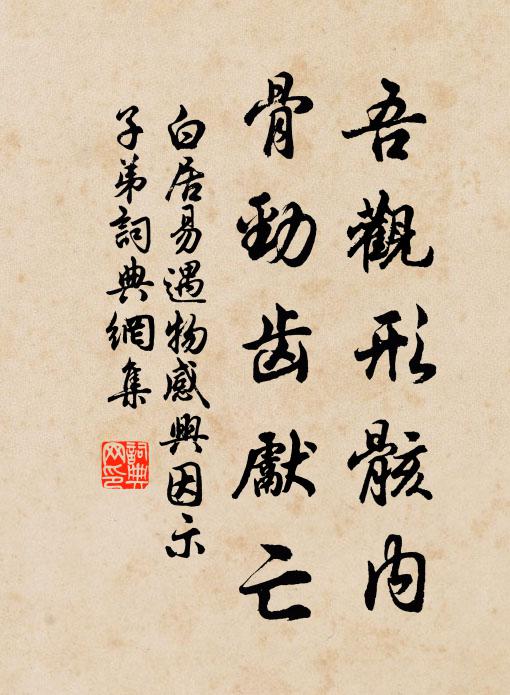 吾觀形骸内
骨勁齿獻亡
白居易遇物感興因示
子弟詞典網集
詞典网印